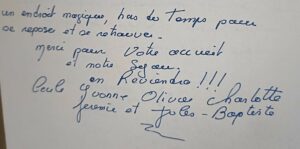 un endroit magique, hors du Temps pour
se reposer et se retrouver.
Merci pour Votre accueil
et notre Sejour.
on Reviendra !!!
Yvonne Olivier Charlotte
Jeremie et Jules-Baptiste